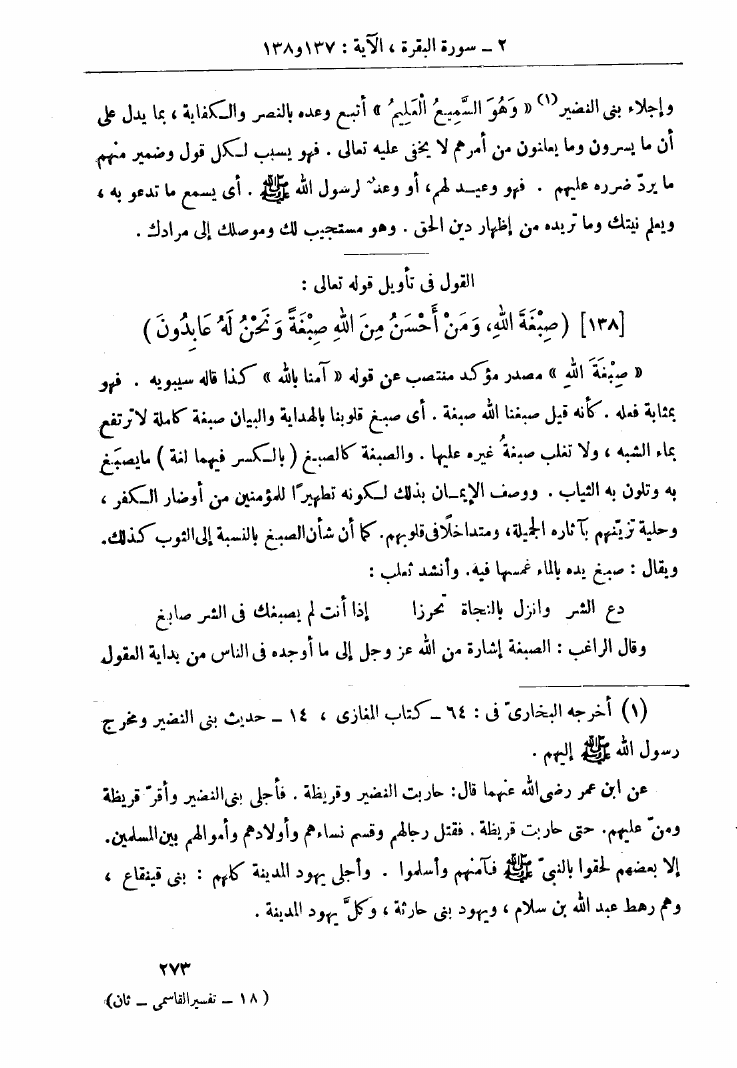 ٢ ــ سورة البقرة ، الآية : ١٣٧ و ١٣٨
وإجلاء بنى النضير(١) « وَهُوَ السَّمِيعُ الْعَلِيمُ » أتبع وعده بالنصر والكفاية ، بما يدل على
أن ما يسرون وما يعلنون من أمرهم لا يخفى عليه تعالى . فهو يسبب لكل قول وضمير منهم
ما يردّ ضرره عليهم . فهو وعيد لهم، أو وعدٌ لرسول الله ﷺ . أى يسمع ما تدعو به ،
ويعلم نيتك وما تريده من إظهار دين الحق . وهو مستجيب لك وموصلك إلى مرادك .
القول فى تأويل قوله تعالى :
[١٣٨] (صِبْغَةَ اللهِ، وَمَنْ أَحْسَنُ مِنَ اللهِ صِبْغَةً وَنَحْنُ لَهُ عَابِدُونَ)
« صِبْغَةَ اللهِ » مصدر مؤكد منتصب عن قوله « آمنا بالله » كذا قاله سيبويه . فهو
بمثابة فعله . كأنه قيل صبغنا الله صبغة . أى صبغ قلوبنا بالهداية والبيان صبغة كاملة لا ترتفع
بماء الشبه ، ولا تغلب صبغةُ غيره عليها . والصبغة كالصبغ ( بالكسر فيهما لغة ) ما يصبَغ
به وتلون به الثياب . ووصف الإيمان بذلك لكونه تطهيرًا للمؤمنين من أوضار الكفر ،
وحلية تزيّنهم بآثاره الجميلة، ومتداخلًا فى قلوبهم. كما أن شأن الصبغ بالنسبة إلى الثوب كذلك.
ويقال : صبغ يده بالماء غمسها فيه. وأنشد ثعلب :
دع الشر وانزل بالنجاة تحرزا إذا أنت لم يصبغك فى الشر صابغ
وقال الراغب : الصبغة إشارة من الله عز وجل إلى ما أوجده فى الناس من بداية العقول
(١) أخرجه البخارىّ فى : ٦٤ ــ كتاب المغازى ، ١٤ ــ حديث بنى النضير ومخرج
رسول الله ﷺ إليهم .
عن ابن عمر رضى الله عنهما قال: حاربت النضير وقريظة . فأجلى بنى النضير وأقرّ قريظة
ومنّ عليهم. حتى حاربت قريظة . فقتل رجالهم وقسم نساءهم وأولادهم وأموالهم بين المسلمين.
إلا بعضهم لحقوا بالنبىّ ﷺ فآمنهم وأسلموا . وأجلى يهود المدينة كلهم : بنى قينقاع ،
وهم رهط عبد الله بن سلام ، ويهود بنى حارثة ، وكلَّ يهود المدينة .
٢٧٣
( ١٨ ــ تفسير القاسمى ــ ثان)